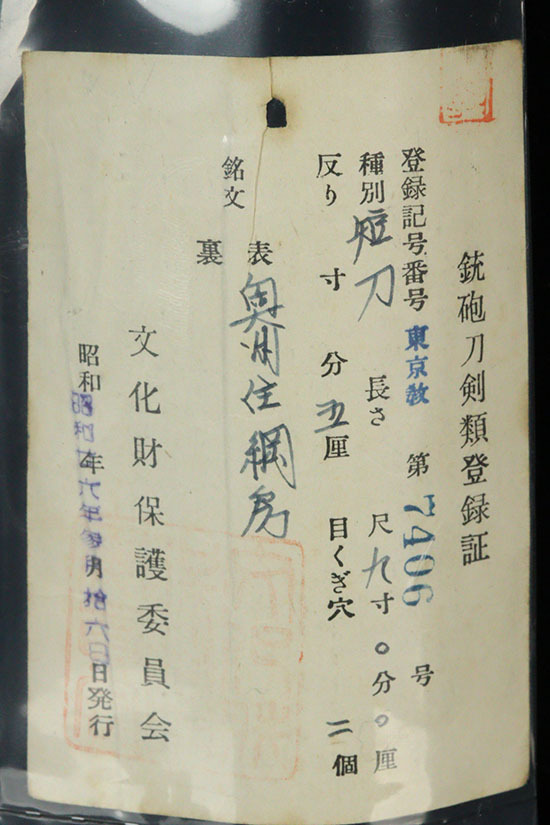 銃砲刀剣類登録証
登録記号番号 東京教 第 7406 号
種別 短刀 長さ 尺 九寸 0分 0厘
反り 寸 分 五厘 目くぎ穴 二個
銘文 表 奥州住綱房
裏
文化財保護委員会
昭和 年 月 日発行
昭和 六年 月拾六日